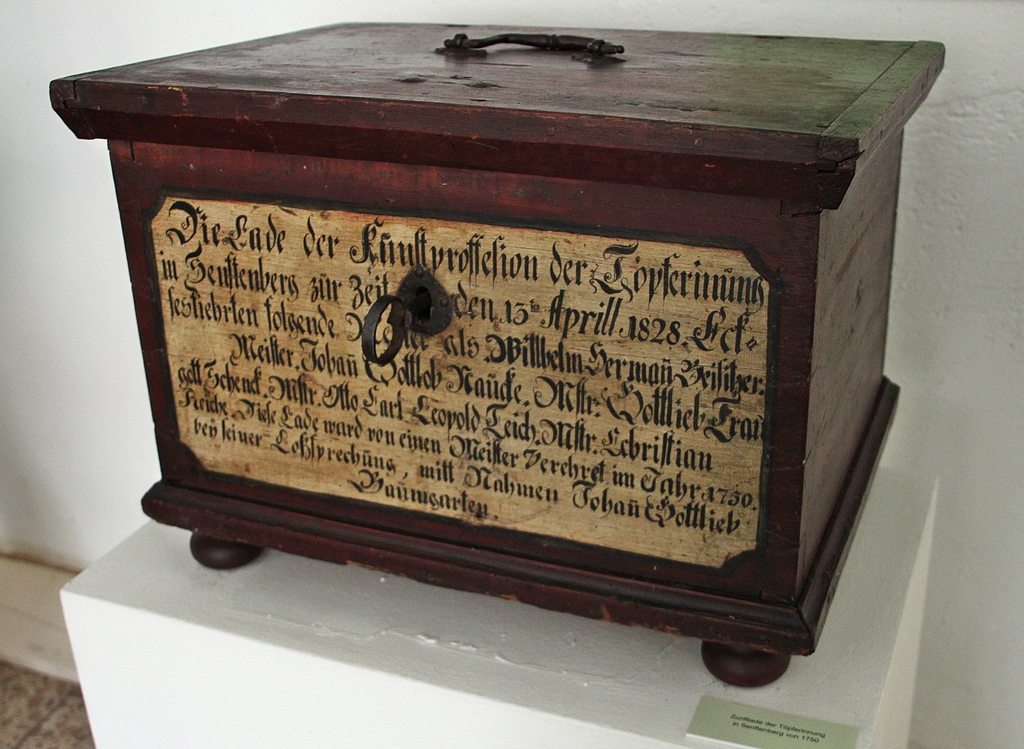 Die Lade der Kunstproffesion der Töpferinung
in Senftenberg zur Zeit den 13ts Aprill 1828. Eck-
fesliebrten folgende als Willhelm Herman Beisitzer.
Meister. Johan Gottlob Naucke. Mstr. Gottlieb Trau
gott Schenck. Mstr. Otto Carl Leopold Teich. Mstr. Christian
Diese Lade ward von einen Meister Verehret im Jahr 1750.
bey seiner Loßsprechung, mitt Nahmen Johan Gottlieb
Baumgarten.
Zunftlade der Töpferinnung
in Senftenberg von 1750